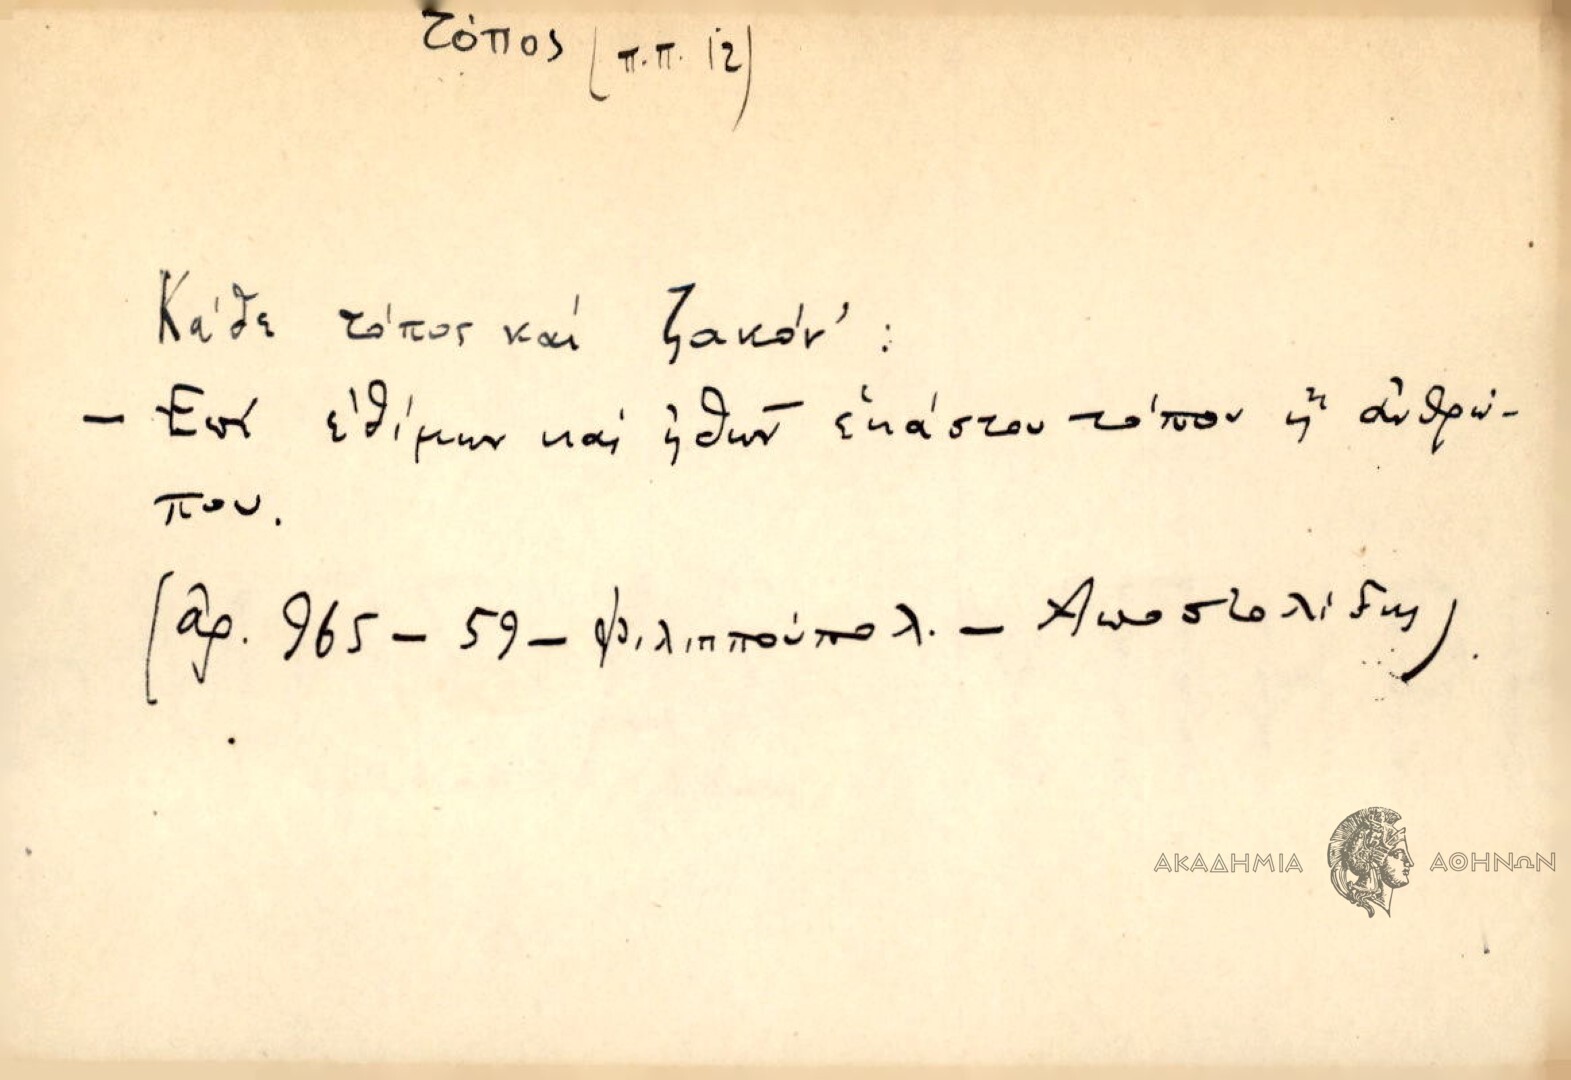 τόπος (π.π. 12)
Κάθε τόπος καί ζακόν' :
— Επί ἐθίμων καί ἠθῶν ἑκάστου τόπου ἤ ἀνθρώ-
που.
(ἀρ. 965 – 59 – Φιλιππούπολ. – Αποστολίδης).
ΑΚΑΔΗΜΙΑ ΑΘΗΝΩΝ